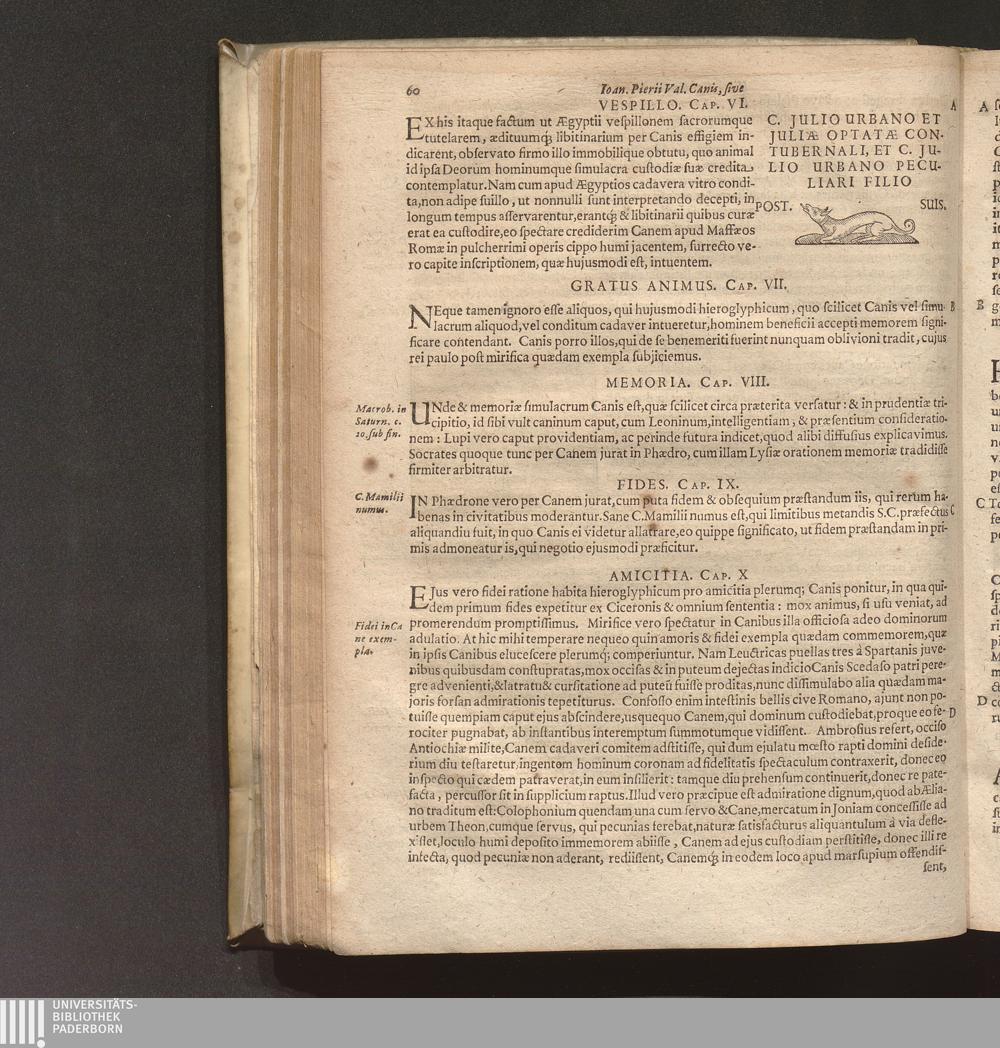 60 Ioan. Pierii Val. Canis, sive
VESPILLO. CAP. VI.
EX his itaque factum ut Ægyptii vespillonem sacrorumque
tutelarem, ædituumq; libitinarium per Canis effigiem in-
dicarent, observato firmo illo immobilique obtutu, quo animal
id ipsa Deorum hominumque simulacra custodiæ suæ credita
contemplatur. Nam cum apud Ægyptios cadavera vitro condi-
ta, non adipe suillo, ut nonnulli sunt interpretando decepti, in
longum tempus asservarentur, erantq; & libitinarii quibus curæ
erat ea custodire, eo spectare crediderim Canem apud Maffæos
Romæ in pulcherrimi operis cippo humi jacentem, surrecto ve-
ro capite inscriptionem, quæ hujusmodi est, intuentem.
A
C. JULIO URBANO ET
JULIÆ OPTATÆ CON-
TUBERNALI, ET C. JU-
LIO URBANO PECU-
LIARI FILIO
POST. SUIS.
GRATUS ANIMUS. CAP. VII.
NEque tamen ignoro esse aliquos, qui hujusmodi hieroglyphicum, quo scilicet Canis vel simu- B
lacrum aliquod, vel conditum cadaver intueretur, hominem beneficii accepti memorem signi-
ficare contendant. Canis porro illos, qui de se benemeriti fuerint nunquam oblivioni tradit, cujus
rei paulo post mirifica quædam exempla subjiciemus.
MEMORIA. CAP. VIII.
Macrob. in
Saturn. c.
20. sub fin.
UNde & memoriæ simulacrum Canis est, quæ scilicet circa præterita versatur: & in prudentiæ tri-
cipitio, id sibi vult caninum caput, cum Leoninum, intelligentiam, & præsentium consideratio-
nem: Lupi vero caput providentiam, ac perinde futura indicet, quod alibi diffusius explicavimus.
Socrates quoque tunc per Canem jurat in Phædro, cum illam Lysiæ orationem memoriæ tradidisse
firmiter arbitratur.
FIDES. CAP. IX.
C. Mamilii
numus.
IN Phædrone vero per Canem jurat, cum puta fidem & obsequium præstandum iis, qui rerum ha-
benas in civitatibus moderantur. Sane C. Mamilii numus est, qui limitibus metandis S.C. præfectus C
aliquandiu fuit, in quo Canis ei videtur allatrare, eo quippe significato, ut fidem præstandam in pri-
mis admoneatur is, qui negotio ejusmodi præficitur.
AMICITIA. CAP. X
EJus vero fidei ratione habita hieroglyphicum pro amicitia plerumq; Canis ponitur, in qua qui-
dem primum fides expetitur ex Ciceronis & omnium sententia: mox animus, si usu veniat, ad
promerendum promptissimus. Mirifice vero spectatur in Canibus illa officiosa adeo dominorum
Fidei in Ca
ne exem-
pla.
adulatio. At hic mihi temperare nequeo quin amoris & fidei exempla quædam commemorem, quæ
in ipsis Canibus elucescere plerumq; comperiuntur. Nam Leuctricas puellas tres à Spartanis juve-
nibus quibusdam constupratas, mox occisas & in puteum dejectas indicio Canis Scedaso patri pere-
gre advenienti, & latratu & cursitatione ad puteũ fuisse proditas, nunc dissimulabo alia quædam ma-
joris forsan admirationis tepetiturus. Confosso enim intestinis bellis cive Romano, ajunt non po-
tuisse quempiam caput ejus abscindere, usquequo Canem, qui dominum custodiebat, proque eo fe- D
rociter pugnabat, ab instantibus interemptum summotumque vidissent. Ambrosius refert, occiso
Antiochiæ milite, Canem cadaveri comitem adstitisse, qui dum ejulatu mœsto rapti domini deside-
rium diu testaretur, ingentem hominum coronam ad fidelitatis spectaculum contraxerit, donec eo
inspecto qui cædem patraverat, in eum insilierit: tamque diu prehensum continuerit, donec re pate-
facta, percussor sit in supplicium raptus. Illud vero præcipue est admiratione dignum, quod ab Ælia-
no traditum est: Colophonium quendam una cum servo & Cane, mercatum in Joniam concessisse ad
urbem Theon, cumque servus, qui pecunias ferebat, naturæ satisfacturus aliquantulum à via defle-
xisset, loculo humi deposito immemorem abiisse, Canem ad ejus custodiam perstitisse, donec illi re
infecta, quod pecuniæ non aderant, rediissent, Canemq; in eodem loco apud marsupium offendis-
sent,
A
B
C
D
UNIVERSITÄTS-
BIBLIOTHEK
PADERBORN